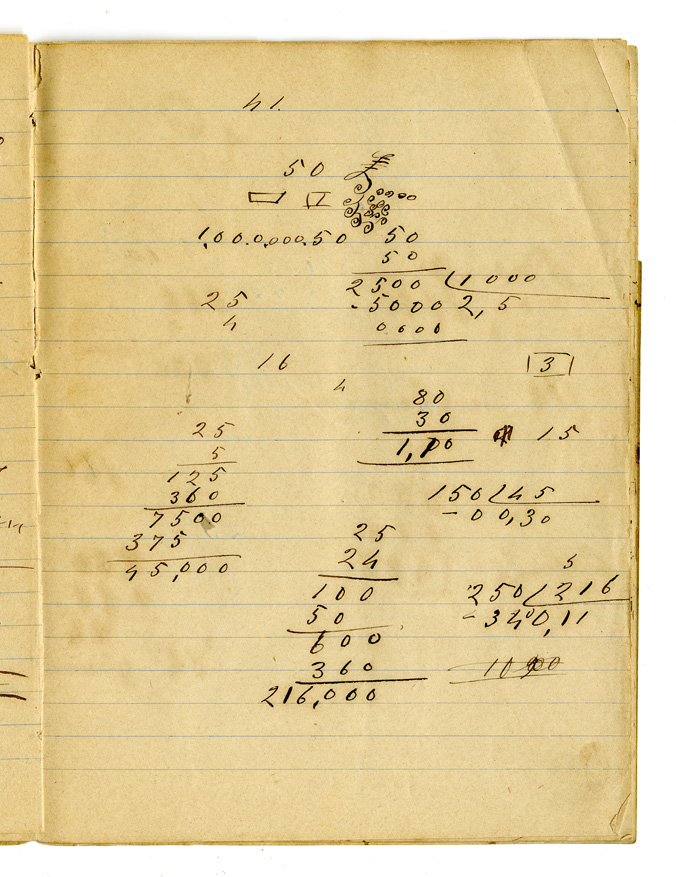 41.
50
1,00.0,000.50 50
50
2500 1000
25 -5000 2,5
4 0000
16 3
4
80
30
25 1,100 15
5
125
360 150 45
7500 -00,30
375 25
45,000 24
5
100 250 216
50 -340,11
600
360
216,000